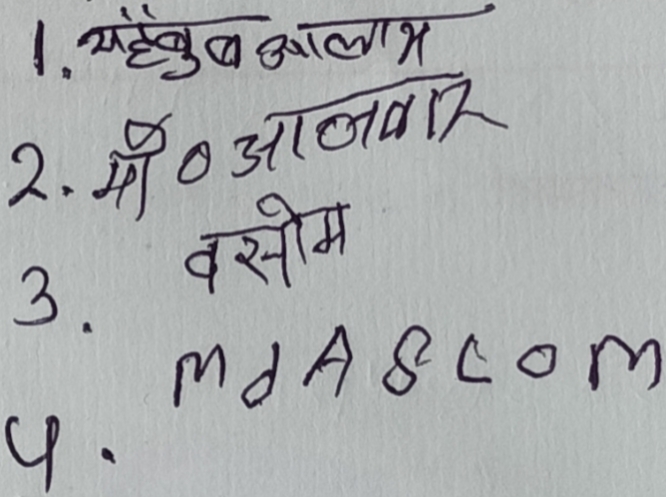 1. महैबुब आलाम
2. मो० आनवार
3. वसीम
4. Md A8com